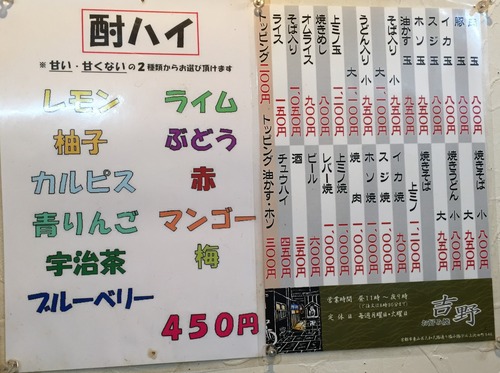 酎ハイ
※ 甘い・甘くないの２種類からお選び頂けます
レモン ライム
柚子 ぶどう
カルピス 赤
青りんご マンゴー
宇治茶 梅
ブルーベリー
450円
豚玉 八〇〇円
イカ玉 八〇〇円
スジ玉 八〇〇円
ホソ玉
油かす玉
そば入り 小
大
うどん入り 小 九五〇円
大 一、一〇〇円
上ミノ玉 一、一〇〇円
焼きめし 八〇〇円
オムライス 九〇〇円
そば入り 一、〇五〇円
ライス 一五〇円
トッピング 一〇〇円
焼きそば 小 八〇〇円
大 九五〇円
焼きうどん 小 八〇〇円
大 九五〇円
焼きそば 上ミノ 一、一〇〇円
イカ焼 八〇〇円
スジ焼 一、〇〇〇円
ホソ焼 一、〇〇〇円
焼肉 一、〇〇〇円
上ミノ焼 一、〇〇〇円
レバー焼 一、〇〇〇円
ビール 六〇〇円
酒 三五〇円
チュウハイ 四五〇円
トッピング 油かす・ホソ 三〇〇円
お好み焼 吉野
営業時間 昼11時～夜9時
定休日 毎週月曜日・火曜日